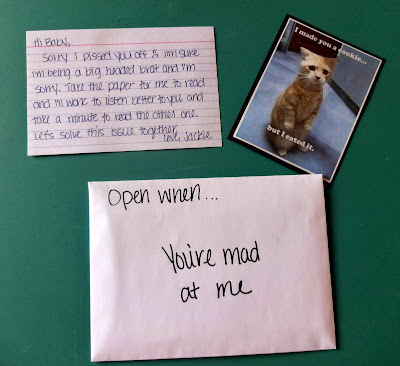 Hi Baby,
Sorry I pissed you off & I'm sure
I'm being a big headed brat and I'm
sorry. Take the paper for me to read
and I'll work to listen better to you and
take a minute to read the other one.
Let's solve this issue together.
Love, Jackie
I made you a cookie...
but I eated it.
Open when...
You're mad
at me